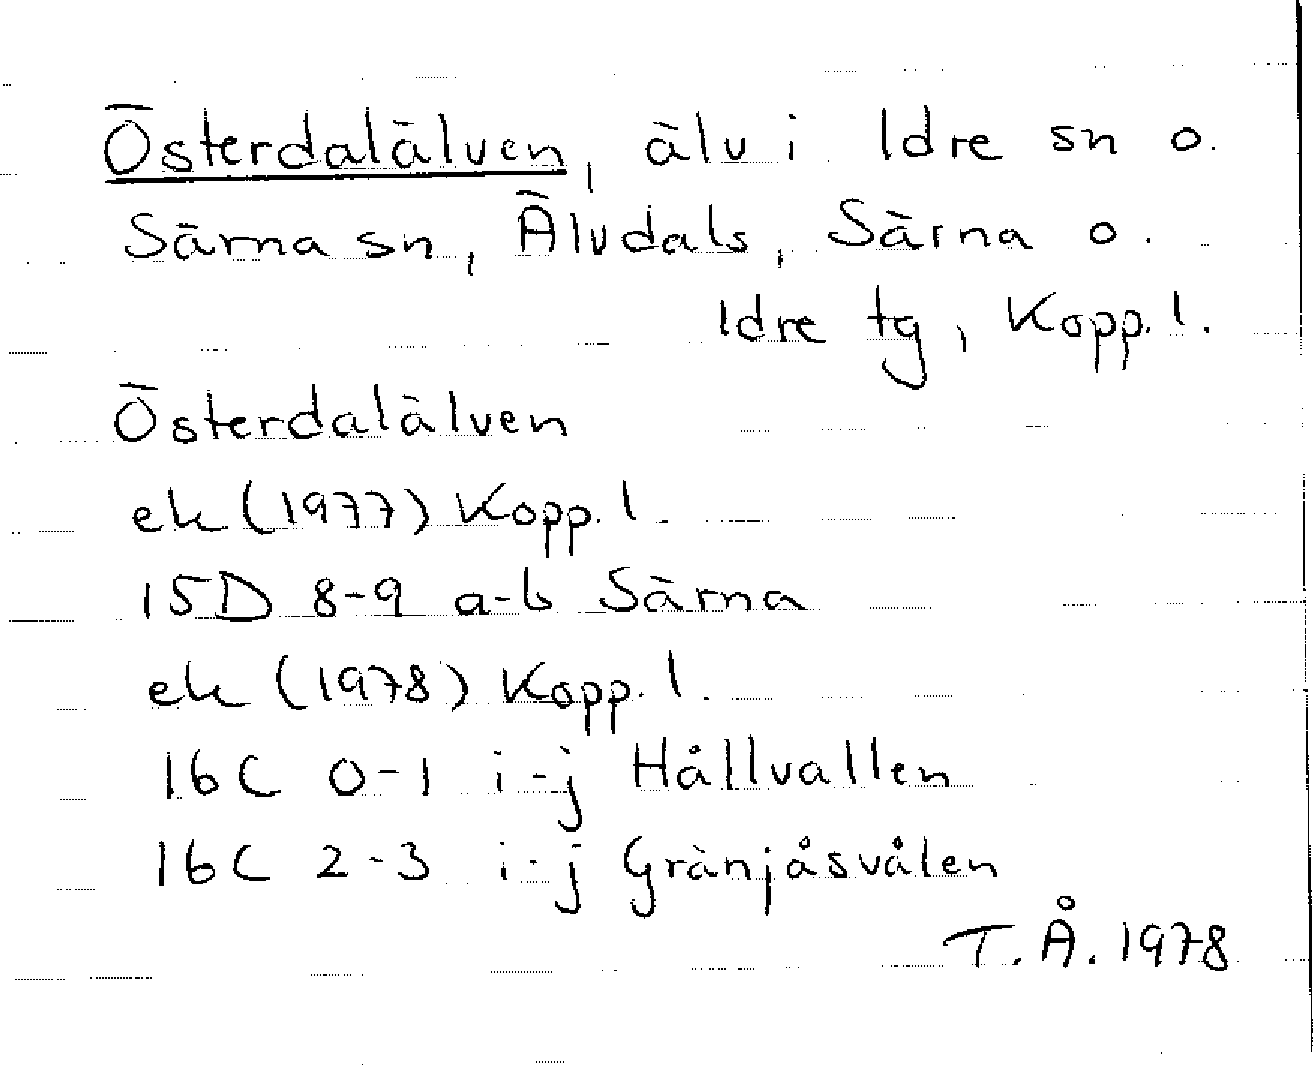 Österdalälven, älv i Idre sn o.
Särna sn, Älvdals, Särna o.
Idre tg, Kopp. l.
Österdalälven
ek (1977) Kopp. l.
15D 8-9 a-b Särna
ek (1978) Kopp. l.
16C 0-1 i-j Hållvallen
16C 2-3 i-j Gränjåsvålen
T.Å. 1978